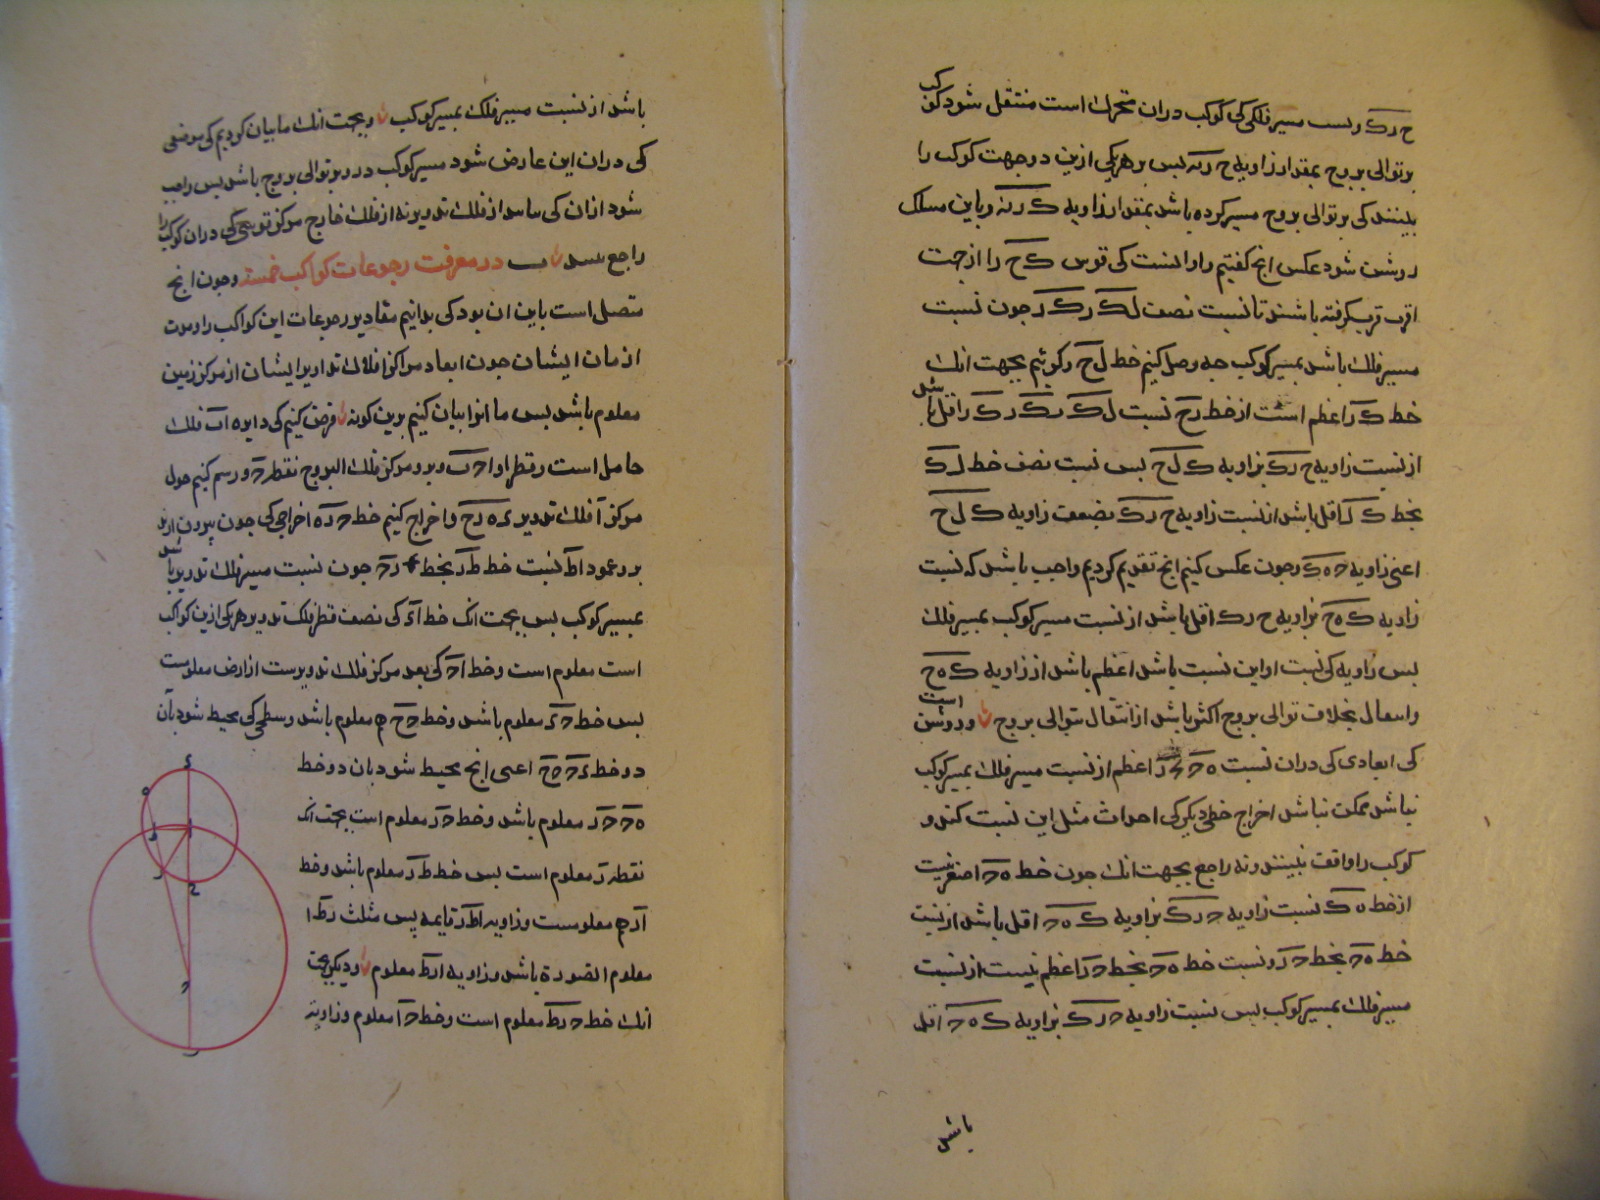 کب
ح ر ک وبست مسیر فلکی کی کوکب دران متحرک است منتقل شود کوکب
بر توالی بروج بمقدار زاویه ح ر ه پس بر هر یکی ازین دو جهت کوکب را
بینند کی بر توالی بروج مسیر کرده باشد بمقدار زاویه ک ر ه وباین مسلک
روشن شود عکس انج کفتیم راوالنست کی قوس ک ح را از جهت
اقرب کرفته باشند تا نسبت نصف ل ک ر ک ر جون نسبت
مسیر فلک باشد بمسیر کوکب جه وصل کنیم خط ل ح وکوئیم بجهت انک
خط ک ر اعظم است از خط ر ح نسبت ل ک ر ک ر اقل باشد
از نسبت زاویه ح ر ک بزاویه ک ل ح پس نسبت نصف خط ل ک
بخط ک ر اقل باشد از نسبت زاویه ح ر ک بضعف زاویه ک ل ح
اعنی زاویه ح ه ک وجون عکس کنیم انج تقدیم کردیم واجب باشد که نسبت
زاویه ک ه ح بزاویه ح ر ک اقل باشد از نسبت مسیر کوکب بمسیر فلک
پس زاویه کی نسبت او این نسبت باشد اعظم باشد از زاویه ک ه ح
وانتقال بخلاف توالی بروج اکثر باشد از انتقال بتوالی بروج وروشن است
کی ابعادی کی دران نسبت ه ح بح ر اعظم از نسبت مسیر فلک بمسیر کوکب
نباشد ممکن نباشد اخراج خطی دیکر کی احداث مثل این نسبت کند و
کوکب را واقف نبینند ونه راجع بجهت انک جون خط ه ح اصغر نیست
از خط ه ک نسبت زاویه ح ر ک بزاویه ک ه ح اقل باشد از نسبت
خط ه ح بخط ح ر ونسبت خط ه ح بخط ح ر اعظم نیست از نسبت
مسیر فلک بمسیر کوکب پس نسبت زاویه ح ر ک بزاویه ک ه ح اقل
باشد
باشد از نسبت مسیر فلک بمسیر کوکب وبجهت انک ما بیان کردیم کی موضعی
کی دران این عارض شود مسیر کوکب در وبر توالی بروج باشد پس واجب
شود ازان کی از فلک تدویر نه از فلک خارج مرکز قوسی کی دران کوکب را
راجع در معرفت رجوعات کواکب خمسه وجون انج
متصل است باین ان بود کی بدانیم مقادیر رجوعات این کواکب را ومدت
ازمان ایشان جون ابعاد مراکز افلاک تداویر ایشان از مرکز زمین
معلوم باشد پس ما انرا بیان کنیم برین کونه فرض کنیم کی دایره ا ب فلک
حامل است وقطر او ا ح ب وبرو مرکز فلک البروج نقطه ح ورسم کنیم حول
مرکز ا فلک تدویر ء ه ر ح واخراج کنیم خط ح ر ه اخراجی کی جون بیرون اریم
برو عمود ا ط نسبت خط ط ر بخط ر ح جون نسبت مسیر فلک تدویر باشد
بمسیر کوکب پس بجهت انک خط ا ء کی نصف قطر فلک تدویر هر یکی ازین کواکب
است معلوم است وخط ا ح کی بعد مرکز فلک تدویرست از ارض معلومست
پس خط ح ء معلوم باشد وخط ح ح هم معلوم باشد وسطحی کی محیط شود بان
دو خط ء ح ح ح اعنی انج محیط شود بان دو خط
ه ح ح ر معلوم باشد وخط ح ر معلوم است بجهت انک
نقطه ر معلوم است پس خط ط ر معلوم باشد وخط
ا ر هم معلومست وزاویه ا ط ر قایمه پس مثلث ر ط ا
معلوم الصورة باشد وزاویه ا ر ط معلوم ودیکر بجهت
انک خط ح ر ط معلوم است وخط ح ا معلوم وزاویه
ء
ه
ط
ا
ر
ح
ح
ب